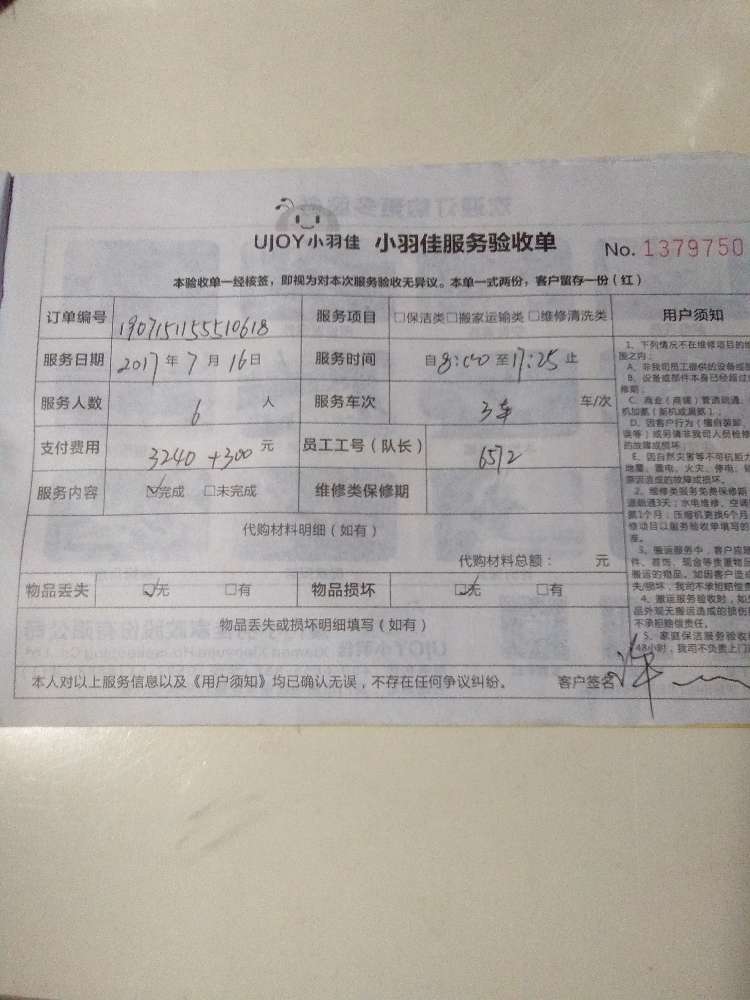 UJOY小羽佳 小羽佳服务验收单 No. 1379750
本验收单一经核签，即视为对本次服务验收无异议。本单一式两份，客户留存一份（红）
订单编号 1907151155510618 服务项目 □保洁类□搬家运输类 □维修清洗类 用户须知
服务日期 2017 年 7 月 16 日 服务时间 自 8:00 至 17:25 止
服务人数 6 人 服务车次 3车 车/次
支付费用 3240 +300 元 员工工号（队长） 6572
服务内容 ☑完成 □未完成 维修类保修期
代购材料明细（如有）
代购材料总额： 元
物品丢失 ☑无 □有 物品损坏 ☑无 □有
物品丢失或损坏明细填写（如有）
本人对以上服务信息以及《用户须知》均已确认无误，不存在任何争议纠纷。 客户签名
1、下列情况不在维修项目的
围之内：
A、非我司员工提供的设备或
B、设备或部件本身已经超过
修期；
C、商业（商铺）管道疏通、
机加氟（新机或漏氟）；
D、因客户行为（擅自装卸、
误等）或另请非我司人员检修
的故障或损坏；
E、因自然灾害等不可抗力
地震、雷电、火灾、停电、
原因造成的故障或损坏。
2、维修类服务免费保修期
道疏通3天；水电维修、空调
氟1个月；压缩机更换6个月
修项目以服务验收单填写的
准。
3、搬运服务中，客户应
件、首饰、现金等贵重物品
搬运的物品。如因客户
失/损坏，我司不承担赔偿责
4、搬运服务验收时，如
品外观无搬运造成的损伤
不承担赔偿责任。
5、家庭保洁服务验收
48小时，我司不负责上门